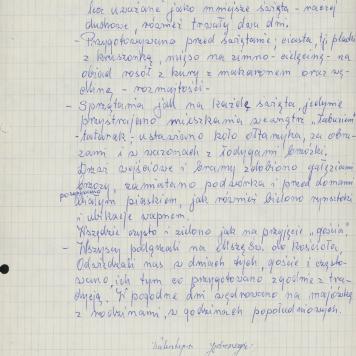 też uważane jako mniejsze święta - raczej
duchowe, również trwały dwa dni.
- Przygotowywano przed świętami, ciasta, tj. placki
z kruszonką, mięso na zimno - cielęcinę - na
obiad rosół z kury z makaronem oraz wę-
dlinę - rozmaitości -
- Sprzątania jak na każde święta, jedynie
przystrajano mieszkania wewnątrz
tatarak, ustawiano koło ołtarzyka, za obra-
zami i w wazonach z łodygami brzózki.
Drzwi wejściowe i bramy zdobiono gałęziami
brzozy, zamiatano podwórka i przed domami
posypywano białym piaskiem, jak również bielono rynsztoki
i ubikacje wapnem.
Wszędzie czysto i zielono jak na przyjęcie "gości".
- Wszyscy podążali na Mszę św. do kościoła.
Odwiedzali nas w dniach tych, goście i często-
wano ich tym co przygotowano zgodnie z tra-
dycją. W pogodne dni wędrowano na majówkę
z rodzinami, w godzinach popołudniowych.